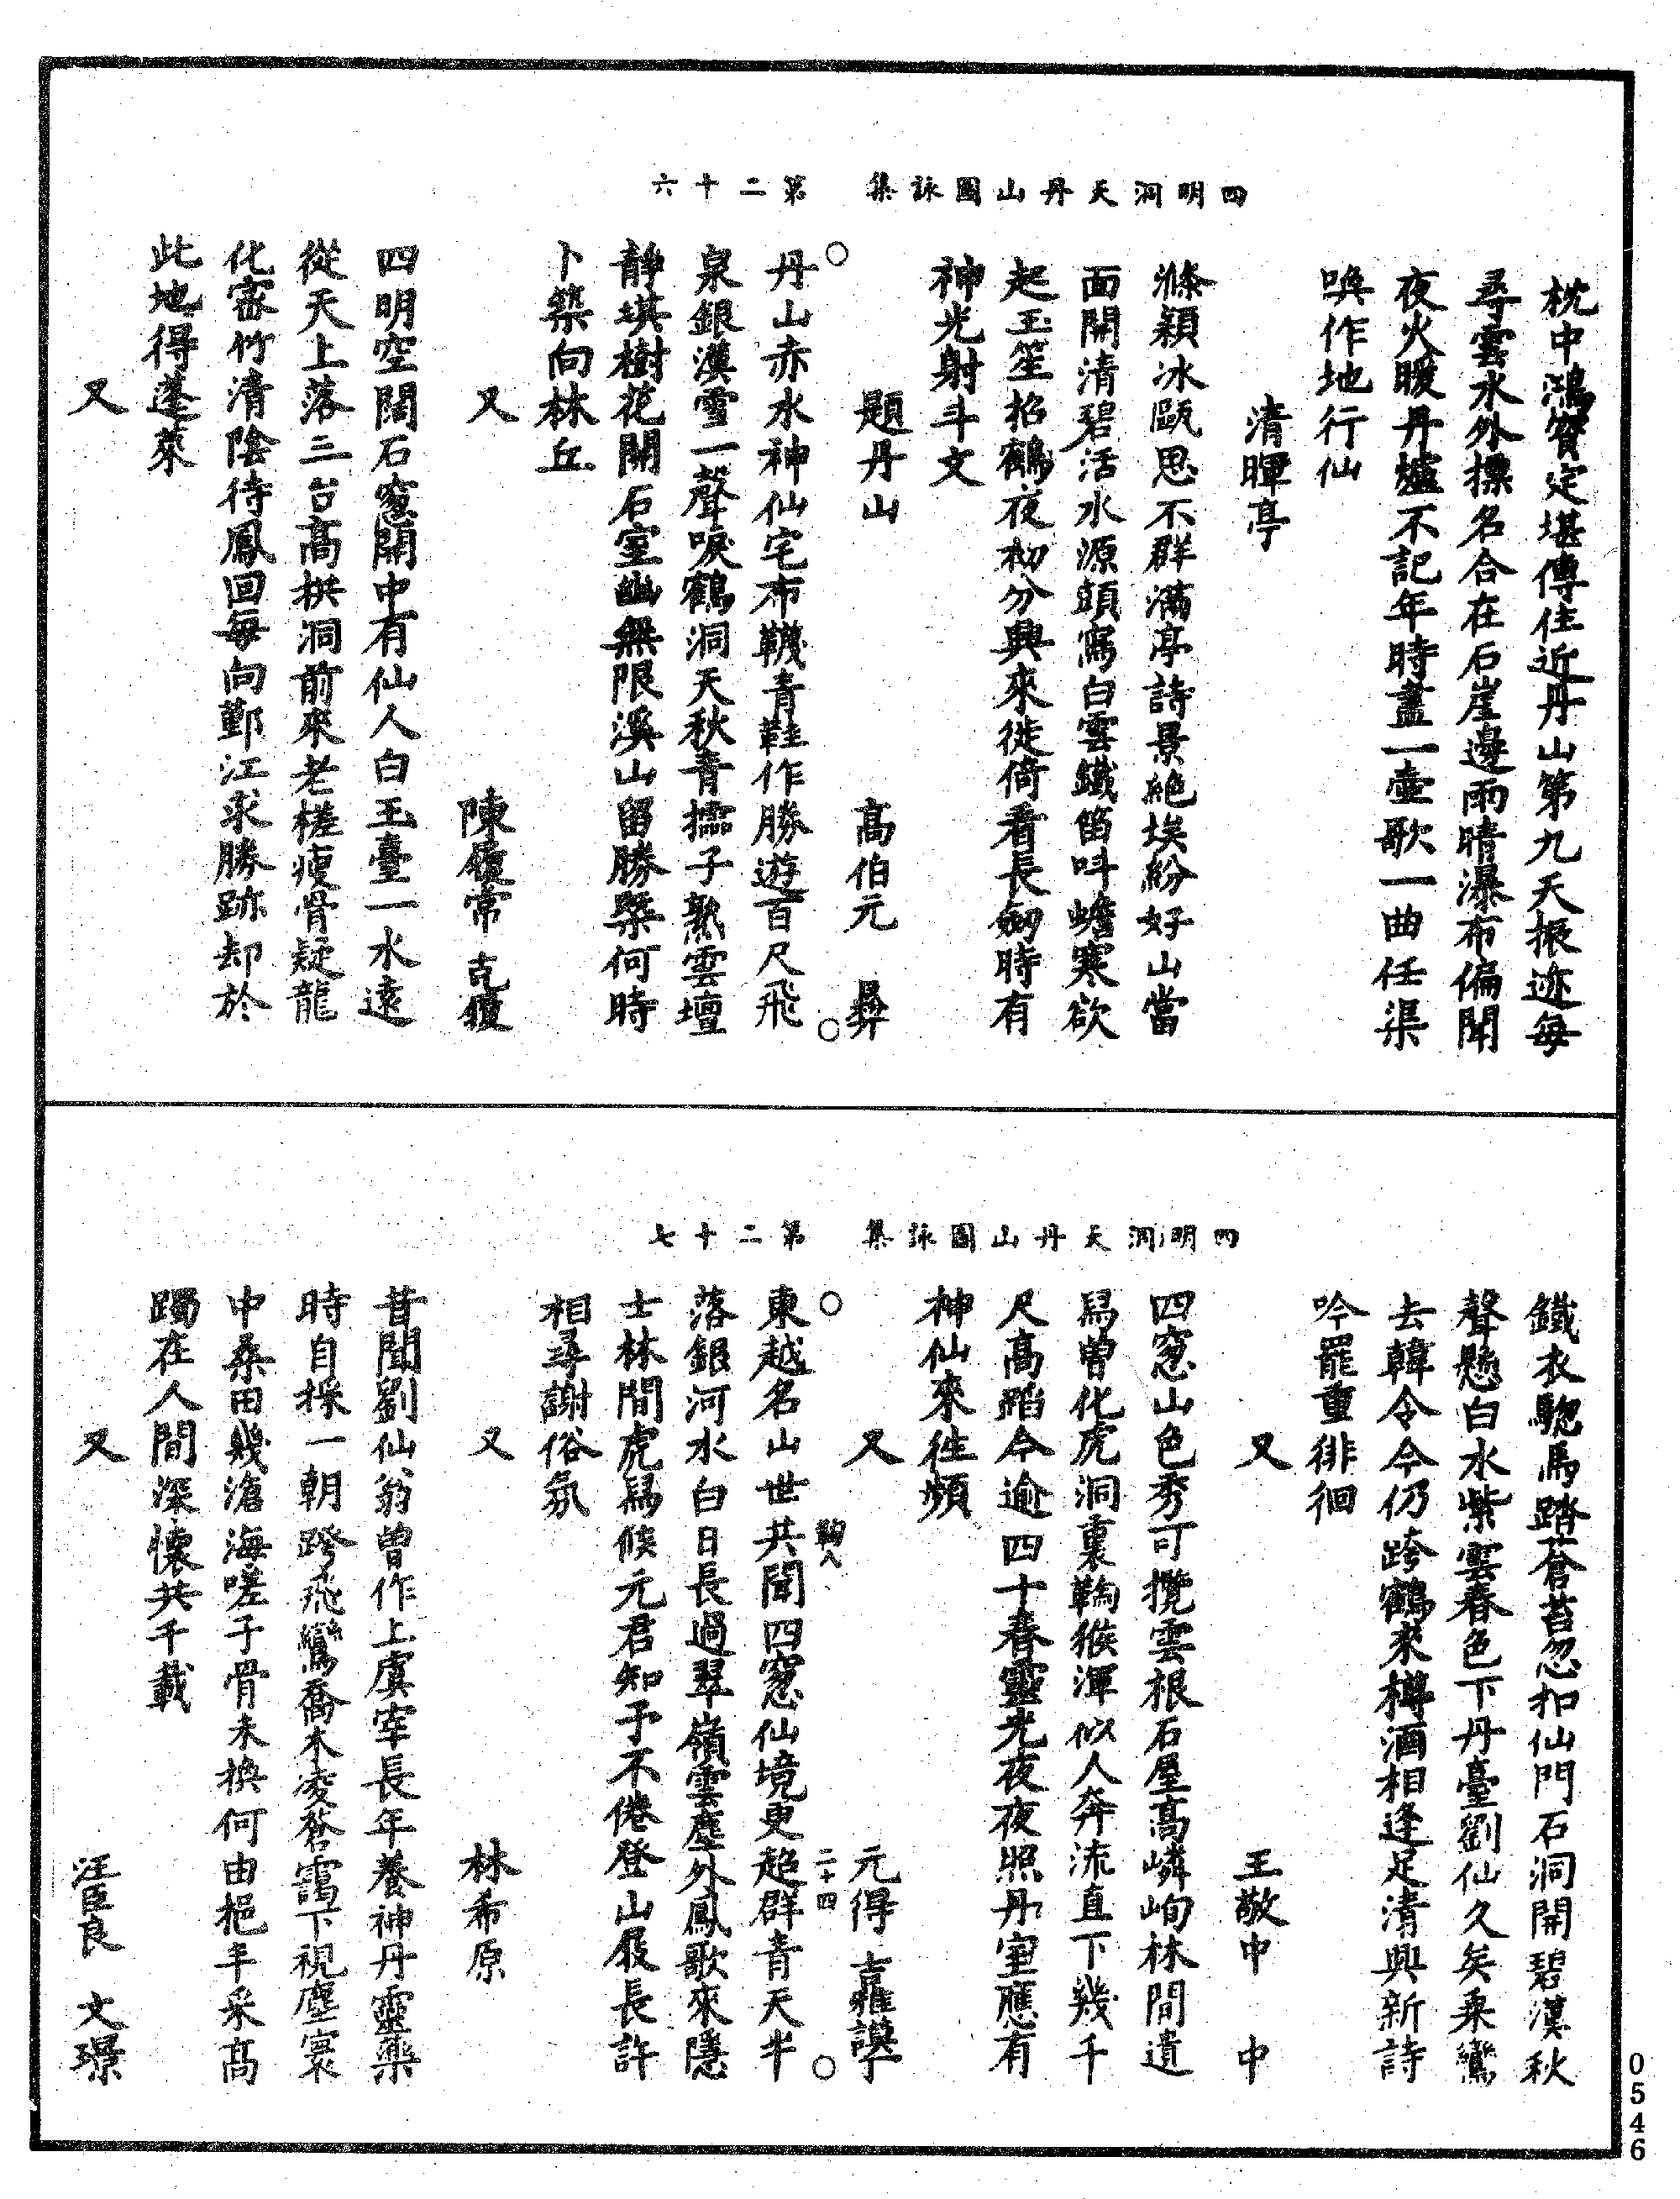 四明洞天丹山圖詠集　第二十六
枕中鴻寶定堪傳住近丹山第九天振迹每
尋雲水外摽名合在石崖邊雨晴瀑布偏聞
夜火暖丹爐不記年時畫一壷歌一曲任渠
喚作地行仙
清暉亭
滌穎冰甌思不群滿亭詩景絶埃紛好山當
面開清碧活水源頭寫白雲鐵笛呌蟾寒欲
起玉笙招鶴夜初分興來徙倚看長劒時有
神光射斗文
題丹山　高伯元　彝
丹山赤水神仙宅布韈青鞋作勝遊百尺飛
泉銀漢雪一聲唳鶴洞天秋青櫺子熟雲壇
靜琪樹花開石室幽無限溪山留勝槩何時
卜築向林丘
又　陳履常　克履
四明空闊石窓開中有仙人白玉臺一水遠
從天上落三台高拱洞前來老槎瘦骨疑龍
化密竹清陰待鳳回每向鄞江求勝跡却於
此地得蓬萊
又
四明洞天丹山圖詠集　第二十七
鐵衣驄馬踏蒼苔忽扣仙門石洞開碧漢秋
聲懸白水紫雲春色下丹臺劉仙久矣乘鸞
去韓令今仍跨鶴來樽酒相逢足清興新詩
吟罷重徘徊
又　王敬中　中
四窓山色秀可攬雲根石屋高嶙峋林間遺
舄曾化虎洞裏鞠猴渾似人奔流直下幾千
尺高蹈今逾四十春靈光夜夜照丹室應有
神仙來徃頻
又　元得　吉雅謨丁
鞠人　二十四
東越名山世共聞四窓仙境更超群青天半
落銀河水白日長過翠嶺雲塵外鳳歌來隱
士林間虎舄候元君知予不倦登山屐長許
相尋謝俗氛
又　林希原
昔聞劉仙翁曾作上虞宰長年養神丹靈藥
時自採一朝跨飛鸞喬木凌蒼靄下視塵寰
中桑田幾滄海嗟予骨未換何由挹丰采高
躅在人間深懷共千載
又　汪臣良　文璟
0546